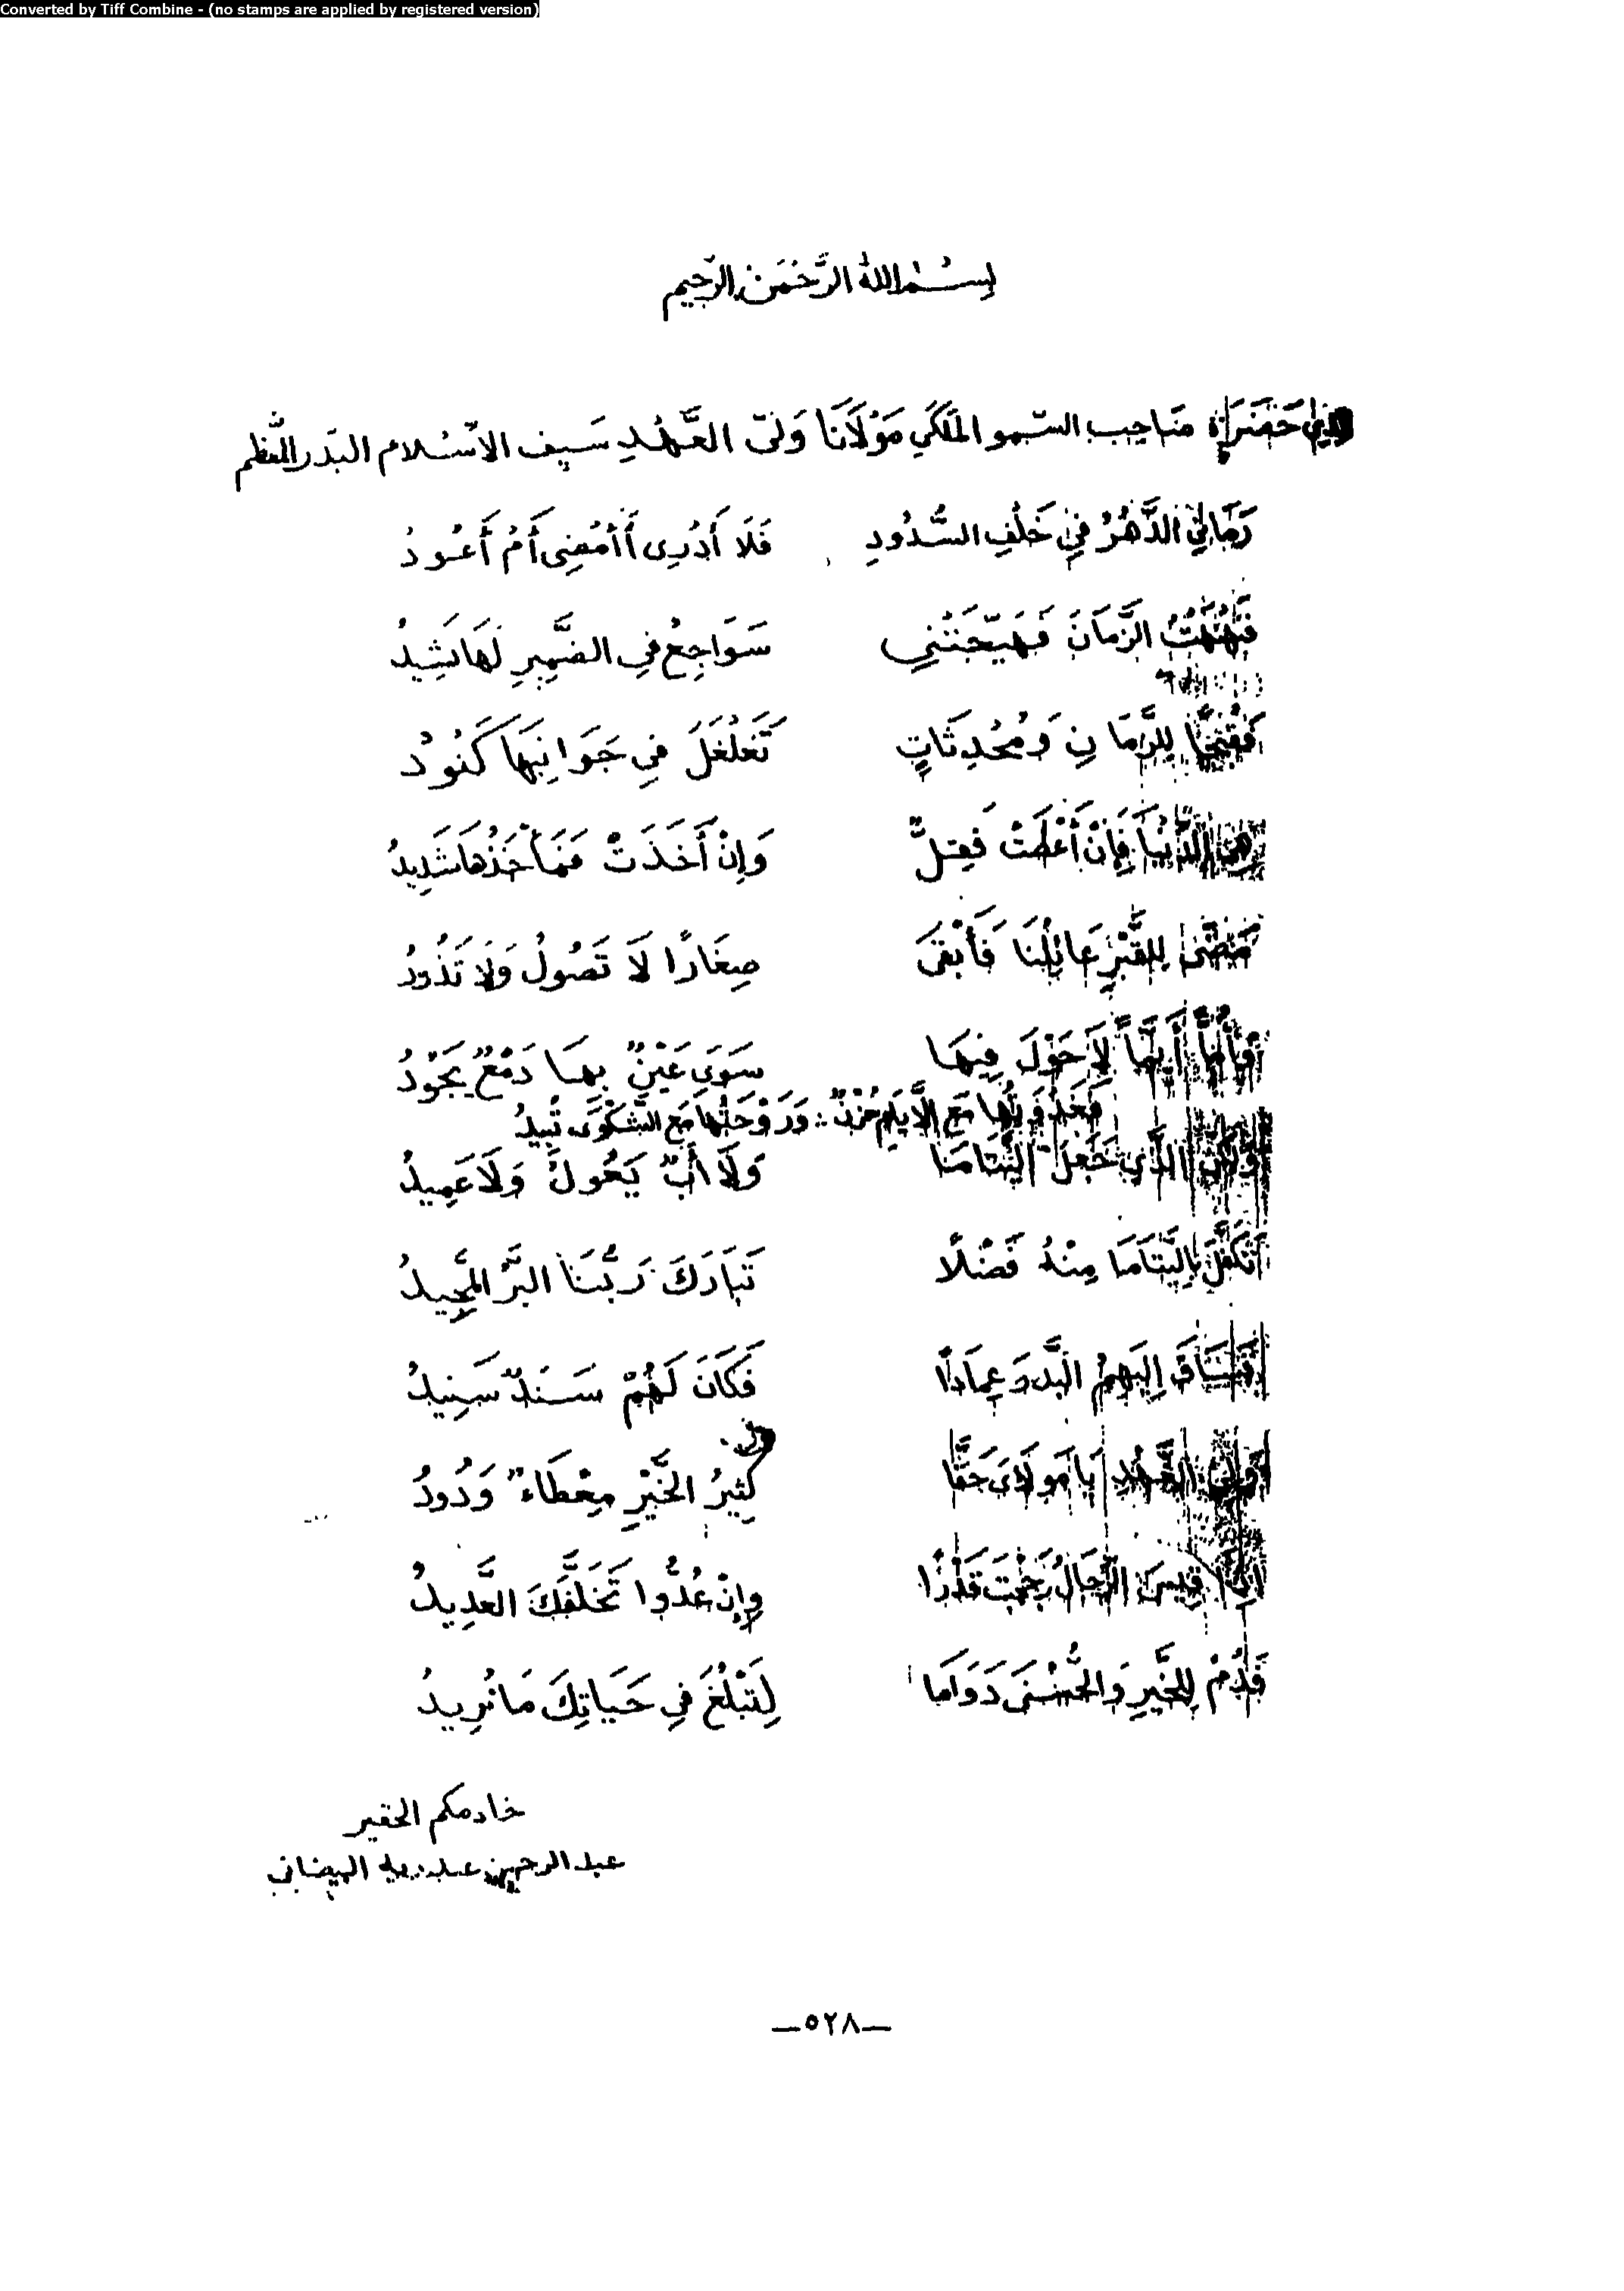 Converted by Tiff Combine - (no stamps are applied by registered version)
بِسْمِ اللهِ الرَّحْمَنِ الرَّحِيمِ
حَضْرَة صَاحِب السّمو المَلَكَي مَوْلَانَا وَلىّ العَهْدِ سَيف الاسْلام البَدر المعَظم
رَمَانِي الدَّهْرُ فِي خَلْفِ السُّدُودِ فَلَا أَدْرِى أَأَمْضِى أَمْ أَعُودُ
الزَّمَانَ فَهَيَّجَتْنِي سَوَاجِعُ فِي الضَّمِيرِ لَهَا نَشِيدُ
فَقُبْحًا لِلزَّمَانِ وَمُحْدِثَاتٍ تَغَلْغَلَ فِي جَوَانِبِهَا كَنُودُ
هِيَ الدُّنْيَا فَإِنْ أَعْطَتْ فَقِلٌّ وَإِنْ أَخَذَتْ فَمَأْخَذُهَا شَدِيدُ
مَضَى لِلقَبْرِ عَائِلُنَا فَأَبْقَى صِغَارًا لَا تَصُولُ وَلَا تَذُودُ
وَأُمًّا أَيِّمًا لَا حَوْلَ فِيهَا سِوَى عَيْنٍ بِهَا دَمْعٌ يَجُودُ
مَعَ الأَيَّامِ حُزْنٌ : وَرَوْحَتُهَا مَعَ الشَّكْوَى تُبِيدُ
الَّذِي جَعَلَ اليَتَامَا وَلَا أَبٌ يَعُولُ وَلَا عَمِيدُ
تَكَفَّلَ بِاليَتَامَا مِنْهُ فَضْلًا تَبَارَكَ رَبُّنَا البَرُّ المَجِيدُ
فَسَاقَ إِلَيْهِمُ البَدْرَ عِمَادًا فَكَانَ لَهُمْ سَنَدٌ سَنِيدُ
وَلِيَّ العَهْدِ يَا مَولَايَ حَقًّا كَثِيرُ الخَيْرِ مِعْطَاءٌ وَدُودُ
إِذَا قِيسَ الرِّجَالُ رَجَحْتَ قَدْرًا وَإِنْ عُدُّوا تَخَلَّفَكَ العَدِيدُ
فَدُمْ لِلخَيْرِ وَالحُسْنَى دَوَامَا لِتَبْلُغَ فِي حَيَاتِكَ مَا تُرِيدُ
خادمكم الحقير
عبد الرحمن عبدربه البيضاني
—٥٢٨—